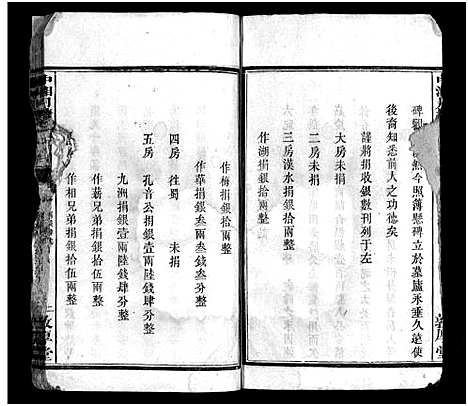 碑劉
照今照簿懸碑立於墓廬永垂久遠使
後裔知悉前人之功德矣
謹將捐收銀數刊列于左
大房未捐
二房未捐
三房漢水捐銀拾兩整
作湖捐銀拾兩整
作梅捐銀拾兩整
作華捐銀叁兩叁錢叁分整
四房 往蜀 未捐
五房 孔音公捐銀壹兩陸錢肆分整
九洲捐銀壹兩陸錢肆分整
作藄兄弟捐銀拾伍兩整
作相兄弟捐銀拾伍兩整
敦厚堂